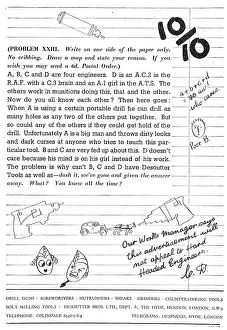 10/10
(PROBLEM XXIII. Write on one side of the paper only.
No cribbing. Draw a map and state your reason. If you
wish you may send a 6d. Postal Order.)
A, B, C and D are four engineers. D is an A.C.2 in the
R.A.F. with a C.3 brain and an A.1 girl in the A.T.S. The
others work in munitions doing this, that and the other.
Now do you all know each other? Then here goes:
When A is using a certain portable drill he can drill as
many holes as any two of the others put together. But
so could any of the others if they could get hold of the
drill. Unfortunately A is a big man and throws dirty looks
and dark curses at anyone who tries to touch this par-
ticular tool. B and C are very fed up about this. D doesn't
care because his mind is on his girl instead of his work.
The problem is why can't B, C and D have Desoutter
Tools as well as—dash it, we've gone and given the answer
away. What? You knew all the time?
a+b+c+d
Poor B.
Our Works Manager says
this advertisement will
not appeal to Hard
Headed Engineers.
DRILL GUNS · SCREWDRIVERS · NUTRUNNERS · SHEARS · GRINDERS · COUNTERSINKING TOOLS
BOLT MILLING TOOLS — DESOUTTER BROS. LTD., DEPT. A, THE HYDE, HENDON, LONDON, N.W.9
TELEPHONE: COLINDALE 6346-7-8-9 TELEGRAMS: DESPNUCO, HYDE, LONDON